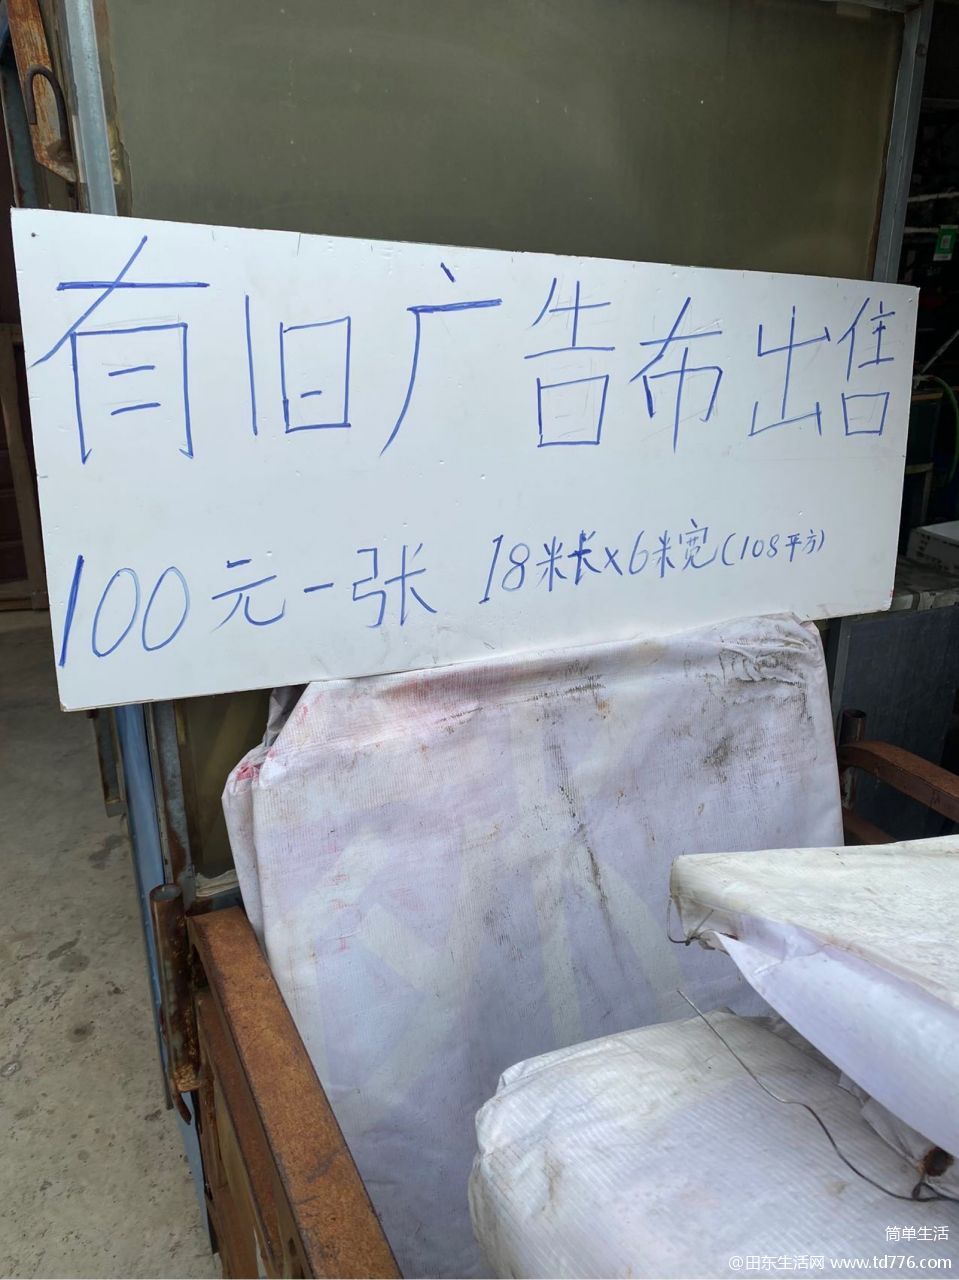 有旧广告布出售
100元一张 18米长x6米宽(108平方)
简单生活
@田东生活网 www.td776.com